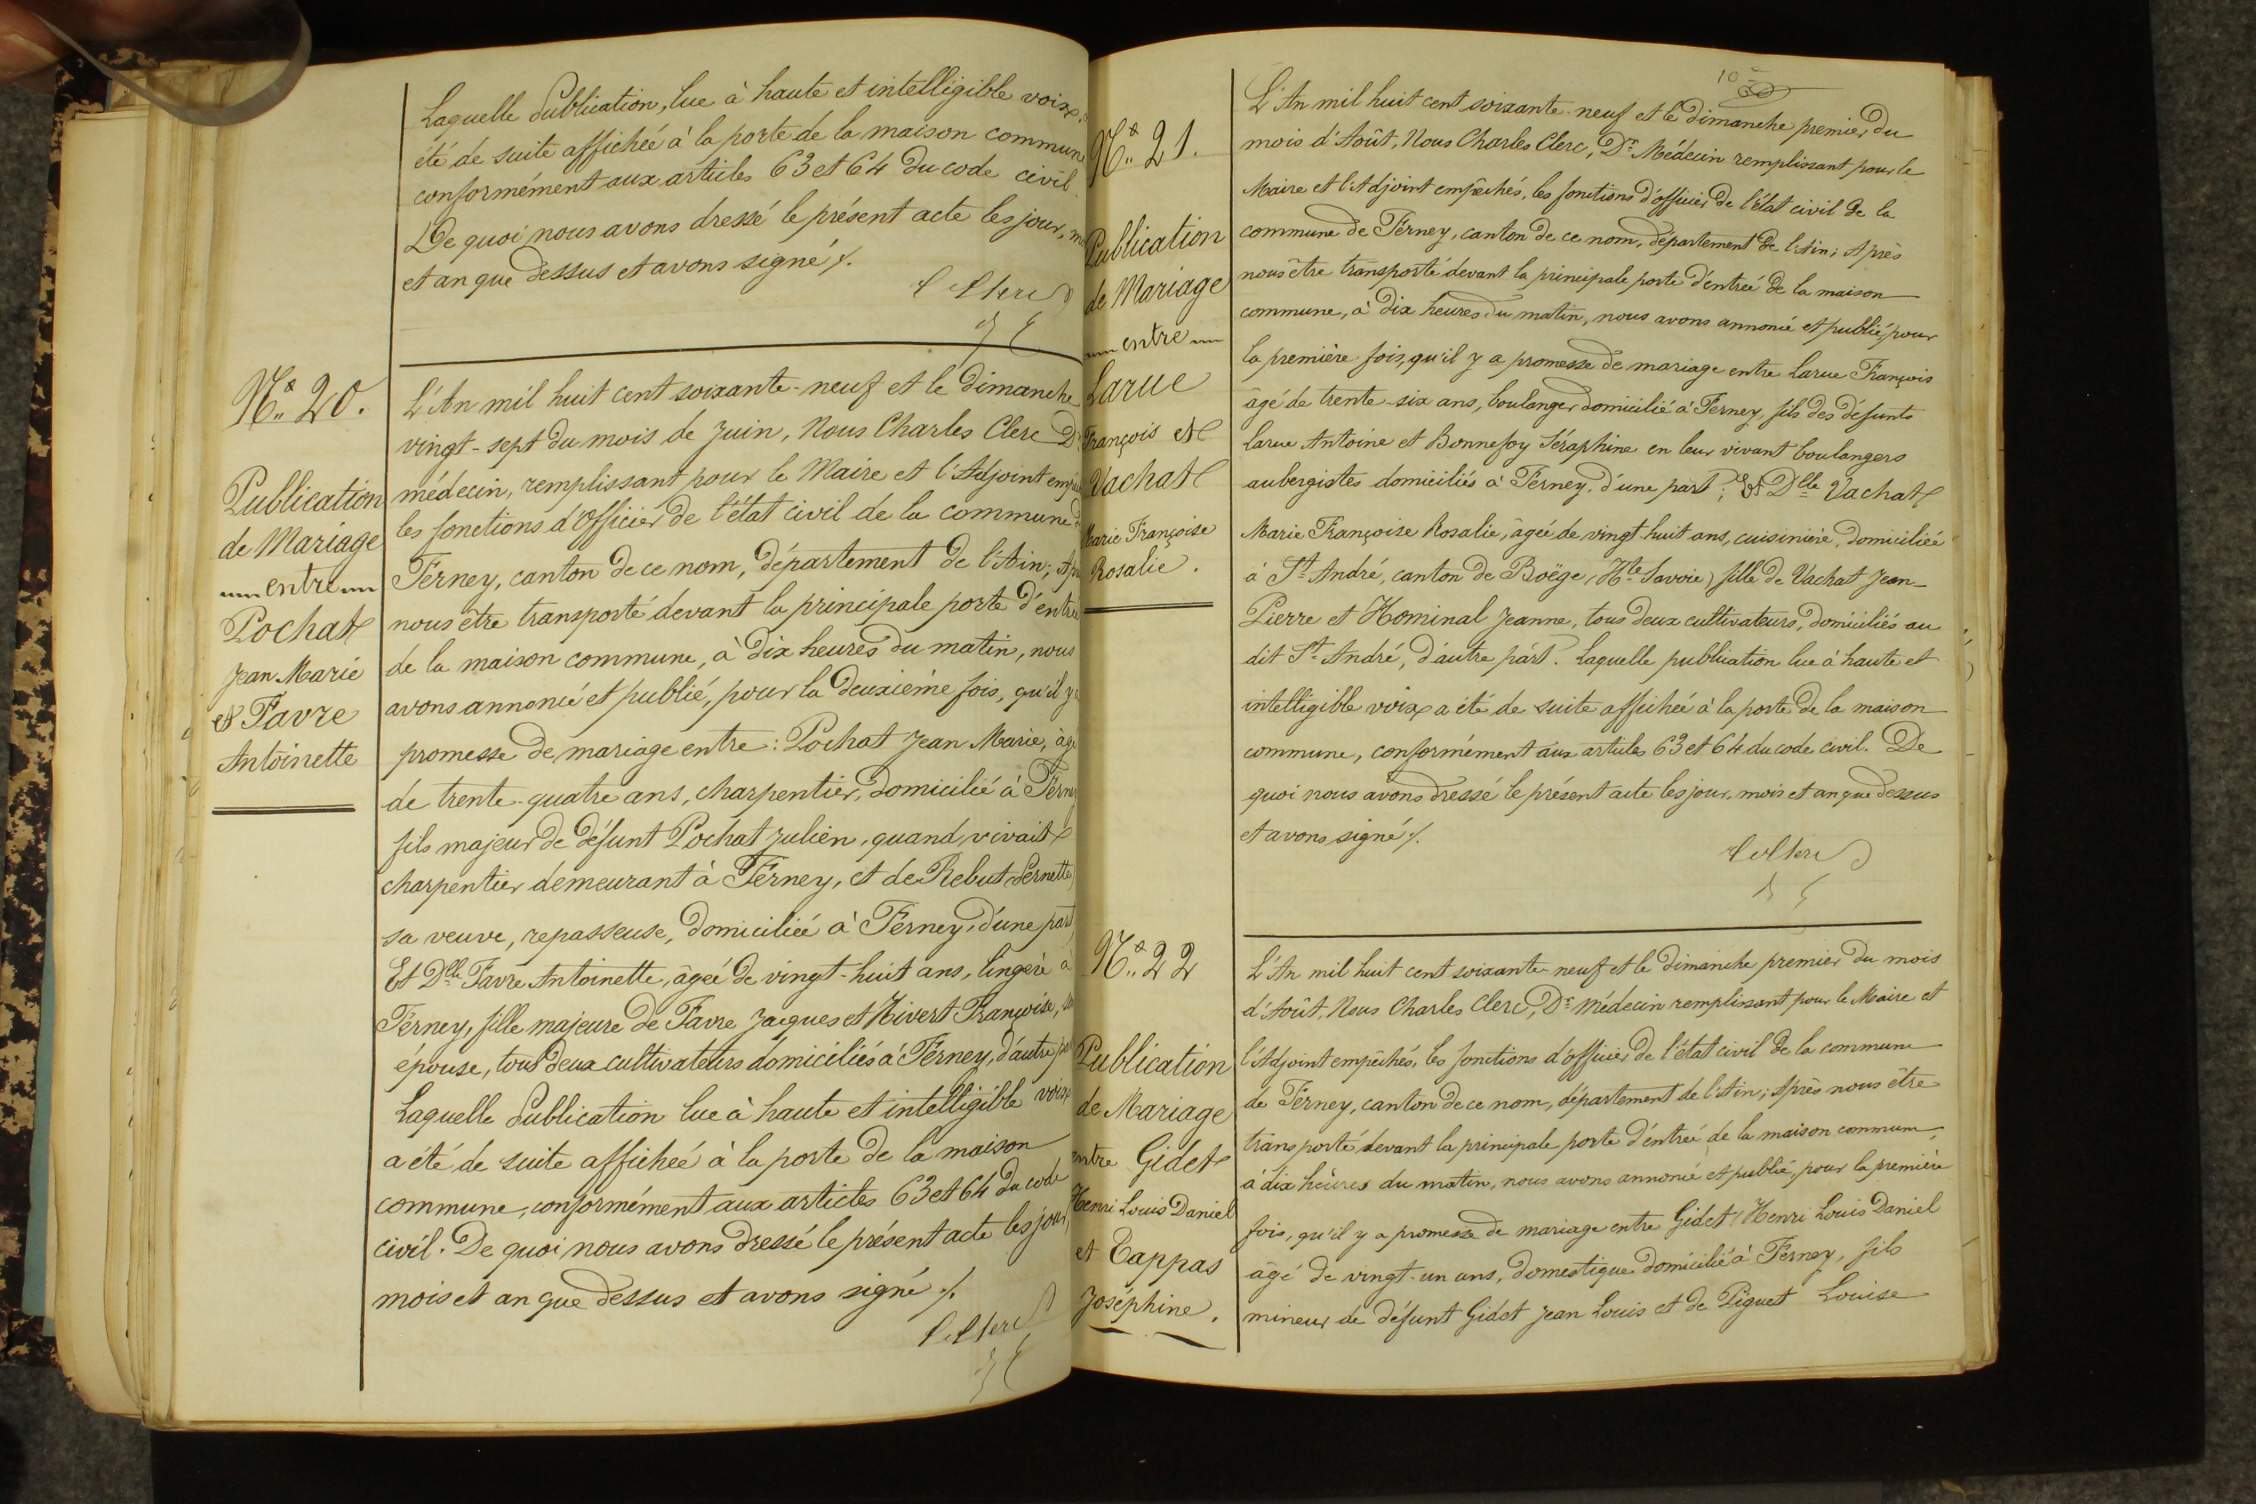 Laquelle Publication, lue à haute et intelligible voix
été de suite affichée à la porte de la maison commune
conformément aux articles 63 et 64 du code civil
De quoi nous avons dressé le présent acte les jour,
et an que dessus et avons signé ./.
Nº 20.
Publication
de Mariage
entre
Pochat
Jean Marie
et Favre
Antoinette
L'An mil huit cent soixante-neuf et le dimanche
vingt-sept du mois de Juin, Nous Charles Clerc Dr
médecin, remplissant pour le Maire et l'Adjoint
les fonctions d'Officier de l'état civil de la commune
Ferney, canton de ce nom, département de l'Ain;
nous être transporté devant la principale porte d'entrée
de la maison commune, à dix heures du matin, nous
avons annoncé et publié, pour la deuxième fois, qu'il y
promesse de mariage entre : Pochat Jean Marie,
de trente-quatre ans, charpentier, domicilié à Ferney
fils majeur de défunt Pochat Julien, quand vivait
charpentier demeurant à Ferney, et de Rebut Pernette
sa veuve, repasseuse, domiciliée à Ferney, d'une part
Et Dlle Favre Antoinette, âgée de vingt-huit ans, lingère à
Ferney, fille majeure de Favre Jacques et Hivert Françoise,
épouse, tout deux cultivateurs domiciliés à Ferney, d'autre
Laquelle Publication lue à haute et intelligible voix
a été de suite affichée à la porte de la maison
commune, conformément aux articles 63 et 64 du code
civil. De quoi nous avons dressé le présent acte les jour,
mois et an que dessus et avons signé ./.
10
Nº 21.
Publication
de Mariage
entre
Larue
François et
Vachat
Marie Françoise
Rosalie.
L'An mil huit cent soixante-neuf et le dimanche premier du
mois d'Août, Nous Charles Clerc, Dr Médecin remplissant pour le
Maire et l'Adjoint empêchés, les fonctions d'officier de l'état civil de la
commune de Ferney, canton de ce nom, département de l'Ain; Après
nous être transporté devant la principale porte d'entrée de la maison
commune, à dix heures du matin, nous avons annoncé et publié, pour
la première fois, qu'il y a promesse de mariage entre Larue François
âgé de trente-six ans, boulanger domicilié à Ferney, fils des défunts
Larue Antoine et Bonnefoy Séraphine en leur vivant boulangers
aubergistes domiciliés à Ferney, d'une part; Et Dlle Vachat
Marie Françoise Rosalie, âgée de vingt-huit ans, cuisinière, domiciliée
à St André, canton de Boëge (Hte Savoie) fille de Vachat Jean-
Pierre et Hominal Jeanne, tous deux cultivateurs, domiciliés au
dit St André, d'autre part. Laquelle publication lue à haute et
intelligible voix a été de suite affichée à la porte de la maison
commune, conformément aux articles 63 et 64 du code civil. De
quoi nous avons dressé le présent acte les jour, mois et an que dessus
et avons signé ./.
Nº 22
Publication
de Mariage
entre Gidet
Henri Louis Daniel
et Tappas
Joséphine.
L'An mil huit cent soixante-neuf et le dimanche premier du mois
d'Août, Nous Charles Clerc, Dr médecin remplissant pour le Maire et
l'Adjoint empêchés, les fonctions d'officier de l'état civil de la commune
de Ferney, canton de ce nom, département de l'Ain; Après nous être
transporté devant la principale porte d'entrée de la maison commune,
à dix heures du matin, nous avons annoncé et publié, pour la première
fois, qu'il y a promesse de mariage entre Gidet Henri Louis Daniel
âgé de vingt-un ans, domestique domicilié à Ferney, fils
mineur de défunt Gidet Jean Louis et de Piguet Louise